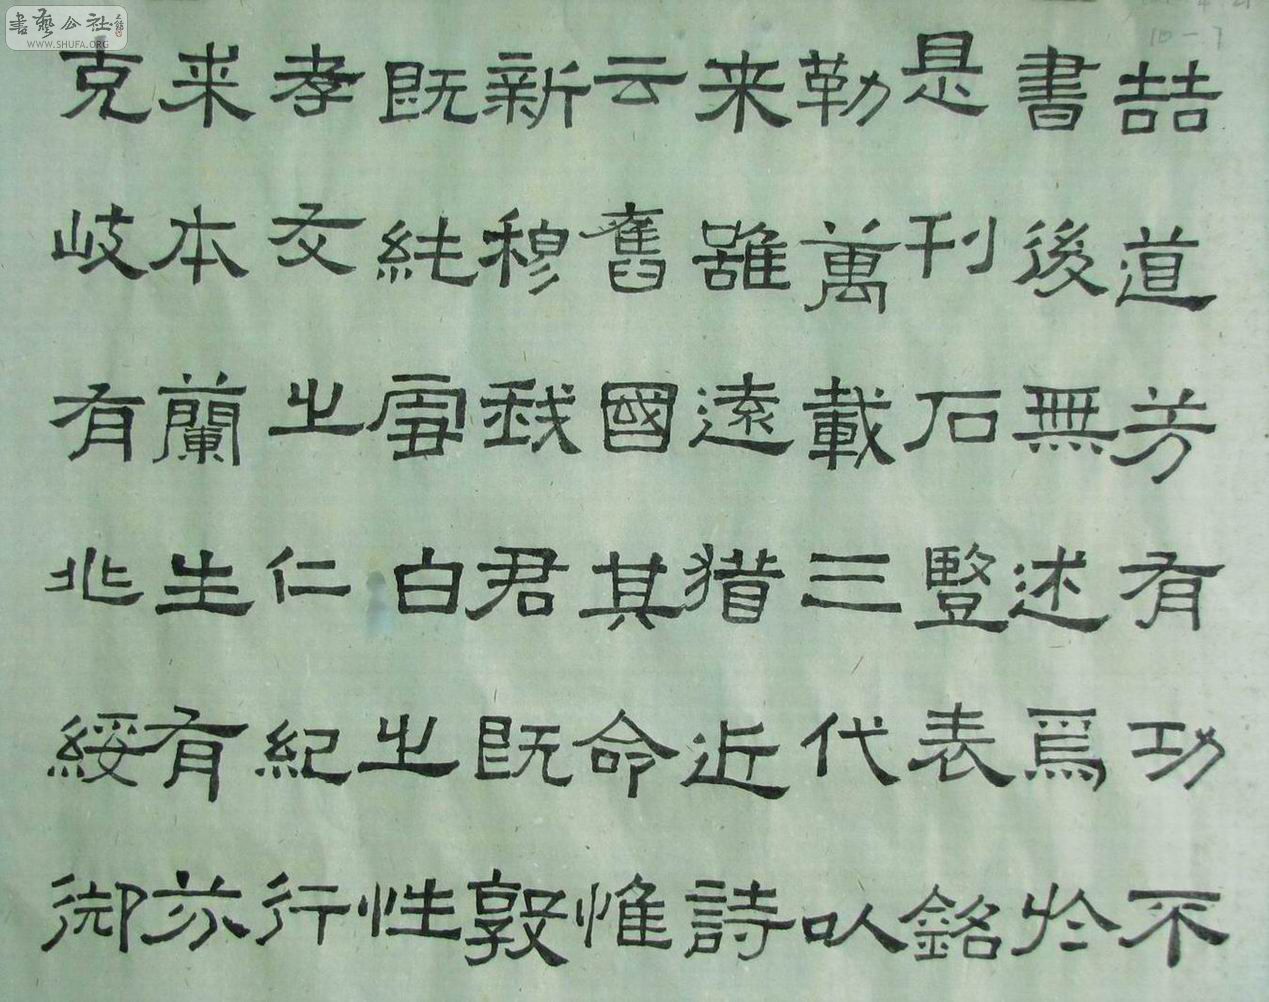 喆道芳有功不
書後無述焉於
是刊石豎表銘
勒萬載三代以
来雖遠猶近詩
云舊國其命惟
新穆我君既敦
既純雪白之性
孝友之仁紀行
来本蘭生有芬
克岐有兆綏御
書藝公社
WWW.SHUFA.ORG